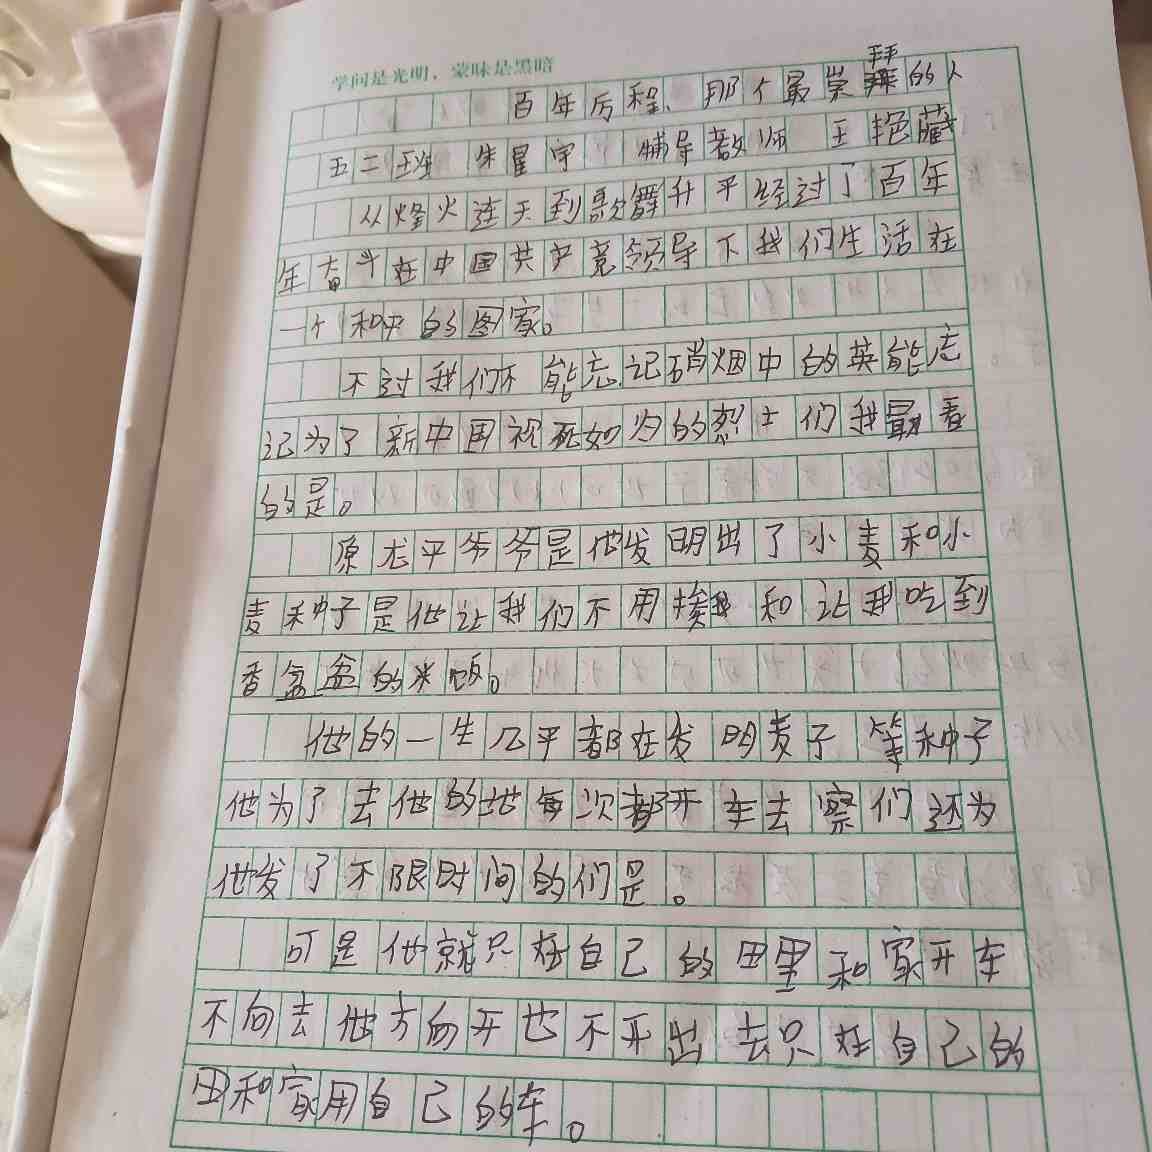 学问是光明，蒙昧是黑暗
百年历程、那个最崇拜的人
五二班 朱星宇 辅导教师 王艳藏
从烽火连天到歌舞升平经过了百年
年奋斗在中国共产竟领导下我们生活在
一个和平的图家。
不过我们不能忘记硝烟中的英能忘
记为了新中国视死如归的烈士们我最看
的是。
原尤平爷爷是他发明出了小麦和小
麦种子是他让我们不用挨 和让我吃到
香盆盆的米饭。
他的一生几乎都在发明麦子等种子
他为了去他的地每次都开车去察们还为
他发了不限时间的们是。
可是他就只在自己的田里和家开车
不向去他方向开也不开出去只在自己的
田和家用自己的车。